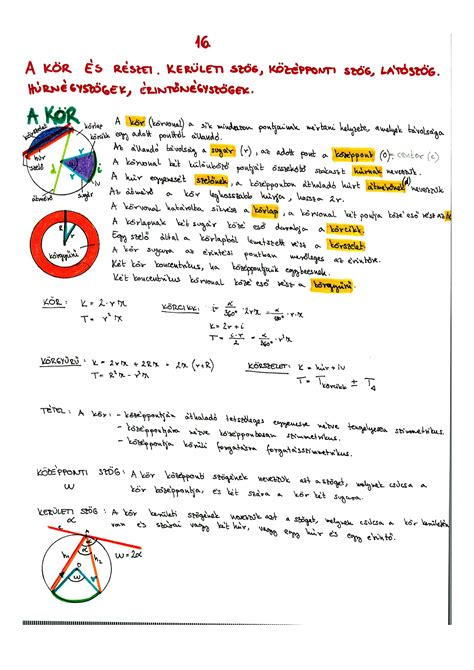 16.
A KÖR ÉS RÉSZEI. KERÜLETI SZÖG, KÖZÉPPONTI SZÖG, LÁTÓSZÖG.
HÚRNÉGYSZÖGEK, ÉRINTŐNÉGYSZÖGEK.
A KÖR
A kör (körvonal) a sík mindazon pontjainak mértani helyzete, amelyek távolsága
egy adott ponttól állandó.
Az állandó távolság a sugár (r), az adott pont a középpont (O). centar (c)
A körvonal két különböző pontját összekötő szakaszt húrnak nevezzük.
A húr egyenesét szelőnek, a középponton áthaladó húrt átmérőnek nevezzük
Az átmérő a kör leghosszabb húrja, hossza 2r.
A körvonal határolta síkrész a körlap, a körvonal két pontja közé eső rész az
A körlapnak két sugár közé eső darabja a körcikk.
Egy szelő által a körlapból lemetszett rész a körszelet.
A kör sugara az érintési pontban merőleges az érintőre.
Két kör koncentrikus, ha középpontjaik egybeesnek.
Két koncentrikus körvonal közé eső rész a körgyűrű.
körszelet
körlap
körcikk
húr
szelő
d
r
iv
átmérő
sugár
körgyűrű
KÖR: K = 2·r·π
T = r²π
KÖRCIKK: i = α/360° · 2rπ = α/180° · r·π
K = 2r + i
T = i·r/2 = α/360° · r²π
KÖRGYŰRŰ: K = 2rπ + 2Rπ = 2π (r+R)
T = R²π − r²π
KÖRSZELET: K = húr + ív
T = Tkörcikk ± T△
TÉTEL: A kör: - középpontján áthaladó tetszőleges egyenesre nézve tengelyesen szimmetrikus.
- középpontjára nézve középpontosan szimmetrikus.
- középpontja körüli forgatásra forgatásszimmetrikus.
KÖZÉPPONTI SZÖG: A kör középponti szögének nevezzük azt a szöget, melynek csúcsa a
ω kör középpontja, és két szára a kör két sugara.
KERÜLETI SZÖG: A kör kerületi szögének nevezzük azt a szöget, melynek csúcsa a kör kerületén
α van és szárai vagy két húr, vagy egy húr és egy érintő.
A
α
h₁
h₂
ω = 2α
O
ω
r